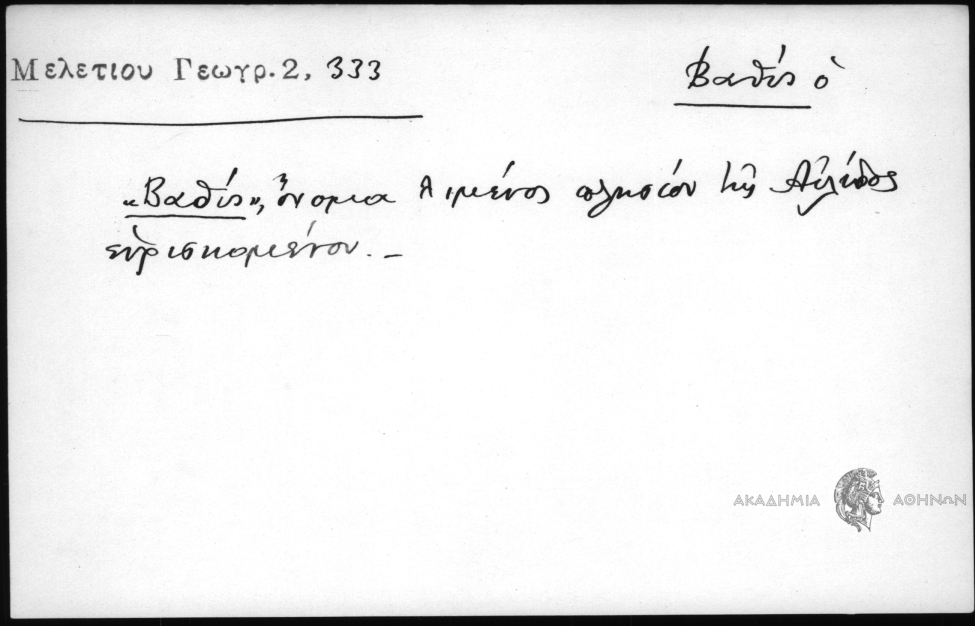 Μελετιου Γεωγρ. 2, 333
Βαθύς ὁ
„Βαθύς", ὄνομα λιμένος πλησίον τῆς Αὐλίδος
εὑρισκομένου. –
ΑΚΑΔΗΜΙΑ ΑΘΗΝΩΝ